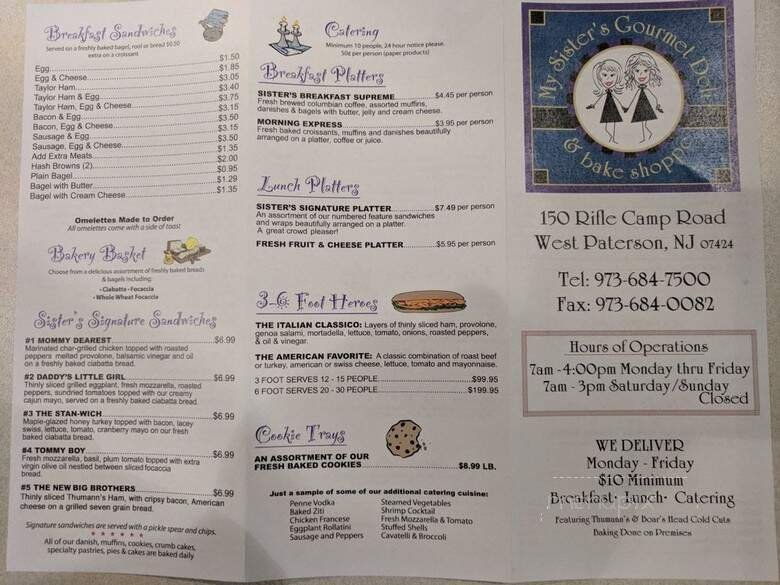 Breakfast Sandwiches
Served on a freshly baked bagel, rool or bread $0.50
extra on a croissant
Egg $1.50
Egg & Cheese $1.85
Taylor Ham $3.05
Taylor Ham & Egg $3.40
Taylor Ham, Egg & Cheese $3.75
Bacon & Egg $3.15
Bacon, Egg & Cheese $3.50
Sausage & Egg $3.15
Sausage, Egg & Cheese $3.50
Add Extra Meats $1.35
Hash Browns (2) $2.00
Plain Bagel $0.95
Bagel with Butter $1.29
Bagel with Cream Cheese $1.35
Omelettes Made to Order
All omelettes come with a side of toast
Bakery Basket
Choose from a delicious assortment of freshly baked breads
& bagels including:
• Ciabatta • Focaccia
• Whole Wheat Focaccia
Sister's Signature Sandwiches
#1 MOMMY DEAREST $6.99
Marinated char-grilled chicken topped with roasted
peppers melted provolone, balsamic vinegar and oil
on a freshly baked ciabatta bread.
#2 DADDY'S LITTLE GIRL $6.99
Thinly sliced grilled eggplant, fresh mozzarella, roasted
peppers, sundried tomatoes topped with our creamy
cajun mayo, served on a freshly baked ciabatta bread.
#3 THE STAN-WICH $6.99
Maple-glazed honey turkey topped with bacon, lacey
swiss, lettuce, tomato, cranberry mayo on our fresh
baked ciabatta bread.
#4 TOMMY BOY $6.99
Fresh mozzarella, basil, plum tomato topped with extra
virgin olive oil nestled between sliced focaccia
bread.
#5 THE NEW BIG BROTHERS $6.99
Thinly sliced Thumann's Ham, with cripsy bacon, American
cheese on a grilled seven grain bread.
Signature sandwiches are served with a pickle spear and chips.
* * * * * *
All of our danish, muffins, cookies, crumb cakes,
specialty pastries, pies & cakes are baked daily
Catering
Minimum 10 people, 24 hour notice please.
50¢ per person (paper products)
Breakfast Platters
SISTER'S BREAKFAST SUPREME $4.45 per person
Fresh brewed columbian coffee, assorted muffins,
danishes & bagels with butter, jelly and cream cheese.
MORNING EXPRESS $3.95 per person
Fresh baked croissants, muffins and danishes beautifully
arranged on a platter, coffee or juice.
Lunch Platters
SISTER'S SIGNATURE PLATTER $7.49 per person
An assortment of our numbered feature sandwiches
and wraps beautifully arranged on a platter.
A great crowd pleaser!
FRESH FRUIT & CHEESE PLATTER $5.95 per person
3-6 Foot Heroes
THE ITALIAN CLASSICO: Layers of thinly sliced ham, provolone,
genoa salami, mortadella, lettuce, tomato, onions, roasted peppers,
& oil & vinegar.
THE AMERICAN FAVORITE: A classic combination of roast beef
or turkey, american or swiss cheese, lettuce, tomato and mayonnaise.
3 FOOT SERVES 12 - 15 PEOPLE $99.95
6 FOOT SERVES 20 - 30 PEOPLE $199.95
Cookie Trays
AN ASSORTMENT OF OUR
FRESH BAKED COOKIES $8.99 LB.
Just a sample of some of our additional catering cuisine:
Penne Vodka
Baked Ziti
Chicken Francese
Eggplant Rollatini
Sausage and Peppers
Steamed Vegetables
Shrimp Cocktail
Fresh Mozzarella & Tomato
Stuffed Shells
Cavatelli & Broccoli
My Sister's Gourmet Deli
& bake shoppe
150 Rifle Camp Road
West Paterson, NJ 07424
Tel: 973-684-7500
Fax: 973-684-0082
Hours of Operations
7am -4:00pm Monday thru Friday
7am - 3pm Saturday/Sunday
Closed
WE DELIVER
Monday - Friday
$10 Minimum
Breakfast• Lunch• Catering
Featuring Thumann's & Boar's Head Cold Cuts
Baking Done on Premises